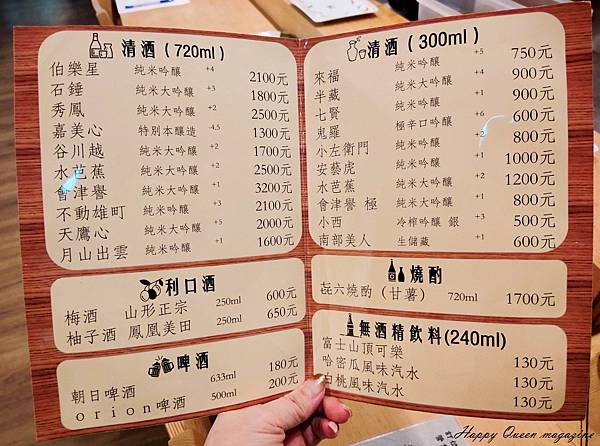 清酒（720ml）
伯樂星 純米吟釀 +4 2100元
石錘 純米大吟釀 +3 1800元
秀鳳 純米大吟釀 +2 2500元
嘉美心 特別本釀造 -4.5 1300元
谷川越 純米大吟釀 +2 1700元
水芭蕉 純米大吟釀 +2 2500元
會津譽 純米大吟釀 +1 3200元
不動雄町 純米吟釀 +3 2100元
天鷹心 純米大吟釀 +5 2000元
月山出雲 純米吟釀 +1 1600元
利口酒
梅酒 山形正宗 250ml 600元
柚子酒 鳳凰美田 250ml 650元
啤酒
朝日啤酒 633ml 180元
orion啤酒 500ml 200元
清酒（300ml）
來福 純米吟釀 +5 750元
半藏 純米大吟釀 +4 900元
七賢 純米吟釀 +1 900元
鬼羅 極辛口吟釀 +6 600元
小左衛門 純米吟釀 +2 800元
安藝虎 純米大吟釀 +1 1000元
水芭蕉 純米大吟釀 +2 1200元
會津譽 極 純米大吟釀 +1 800元
小西 冷榨吟釀 銀 +3 500元
南部美人 生儲藏 +1 600元
燒酌
㐂六燒酌（甘薯） 720ml 1700元
無酒精飲料(240ml)
富士山頂可樂 130元
哈密瓜風味汽水 130元
白桃風味汽水 130元
Happy Queen magazine